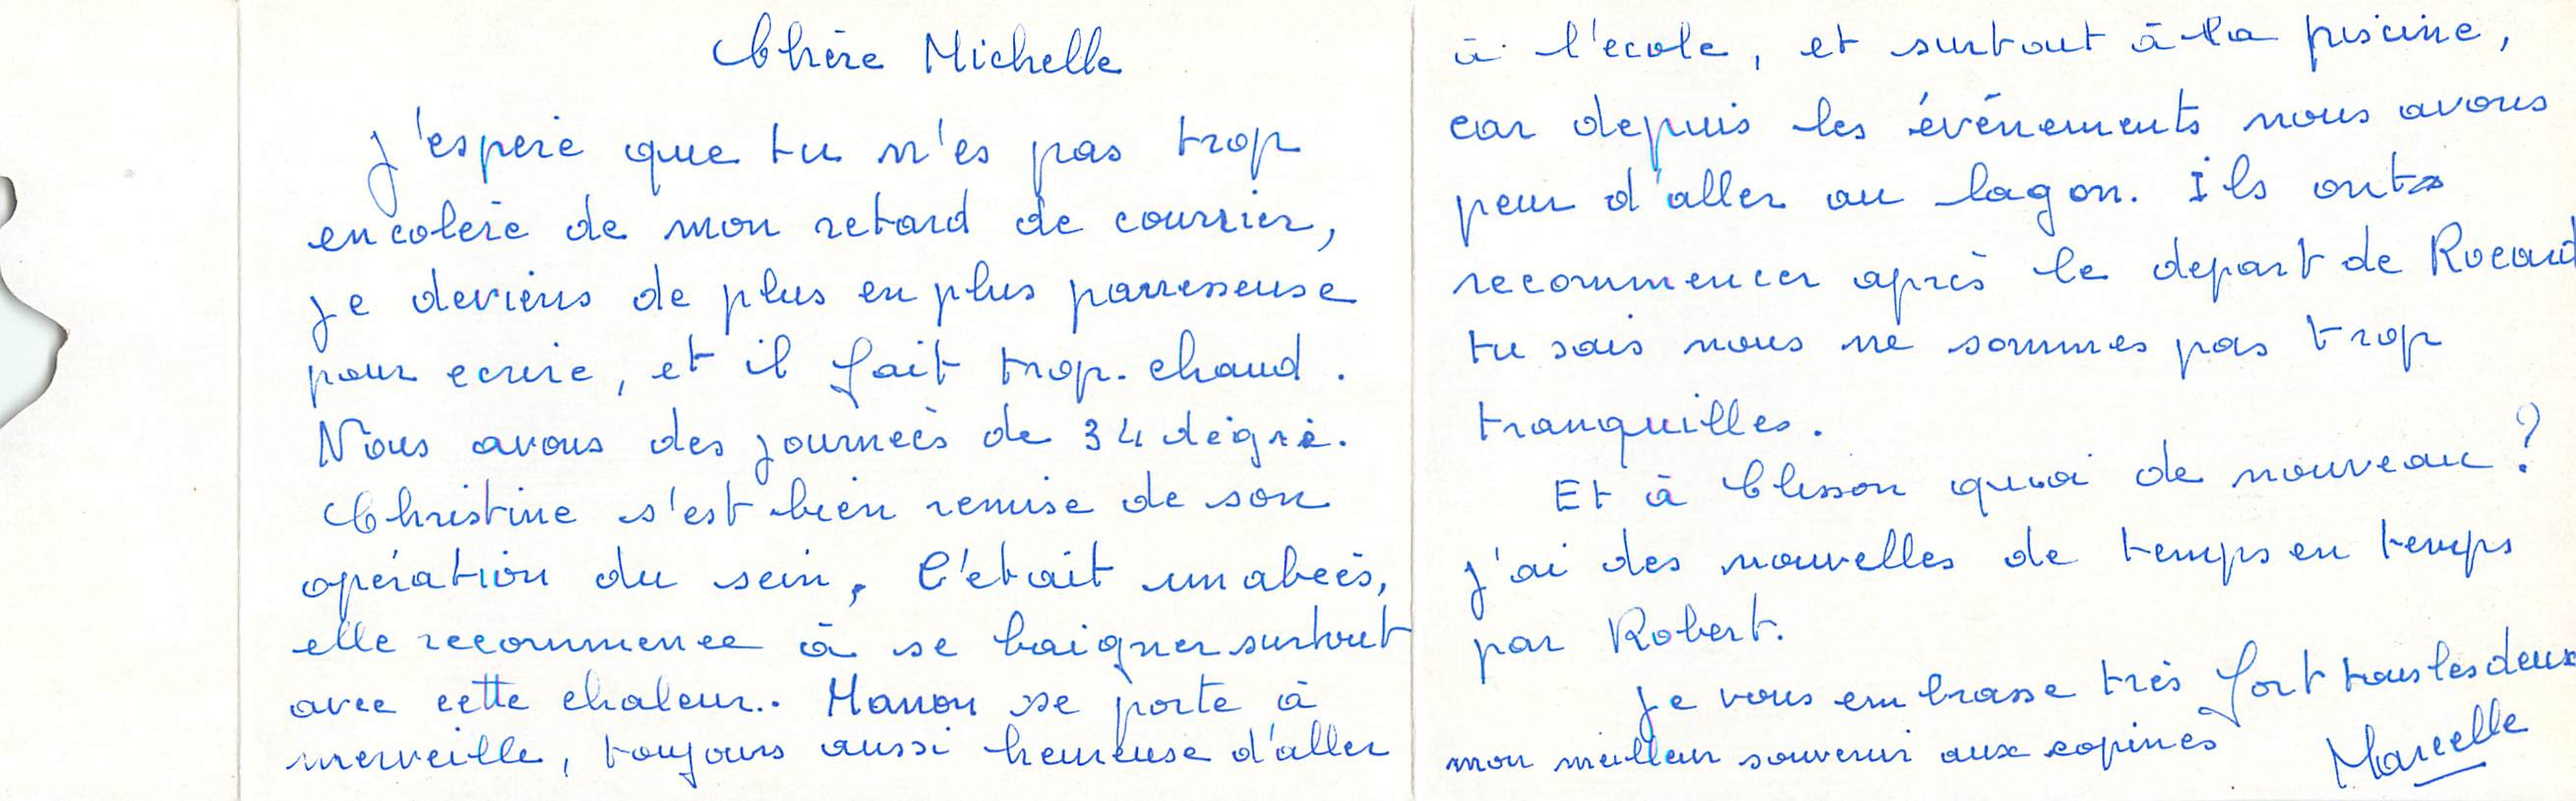 Chère Michelle
J'espère que tu n'es pas trop
en colère de mon retard de courrier,
je deviens de plus en plus parresseuse
pour ecrire, et il fait trop. chaud.
Nous avons des journeès de 34 dégré.
Christine s'est bien remise de son
opération du sein, C'etait un abcès,
elle recommence à se baigner surtout
avec cette chaleur.. Manon se porte à
merveille, toujours aussi heureuse d'aller
à l'ecole, et surtout à la piscine,
car depuis les événements nous avons
peur d'aller au lagon. Ils ont
recommencer après le depart de Rocard
tu sais nous ne sommes pas trop
tranquilles.
Et à Clisson quoi de nouveau ?
j'ai des nouvelles de temps en temps
par Robert.
Je vous embrasse très fort tous les deux
mon meilleur souvenir aux copines
Marcelle